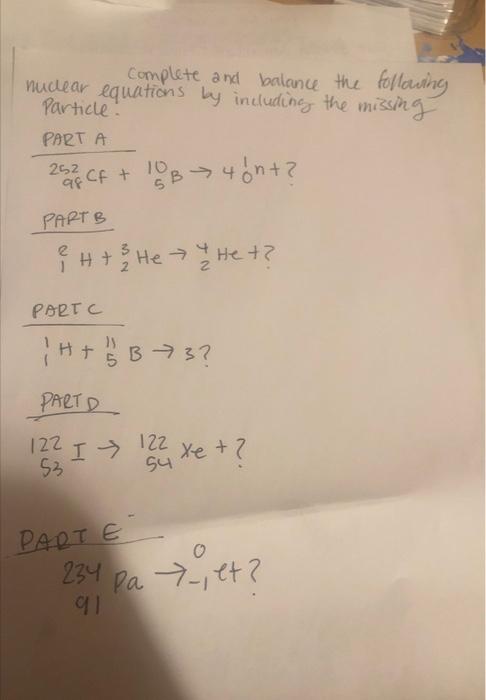 Complete and balance the following
nuclear equations by including the missing
Particle.
PART A
²⁵²₉₈Cf + ¹⁰₅B → 4 ¹₀n + ?
PART B
²₁H + ³₂He → ⁴₂He + ?
PART C
¹₁H + ¹¹₅B → 3?
PART D
¹²²₅₃I → ¹²²₅₄Xe + ?
PART E
²³⁴₉₁Pa → ⁰₋₁e + ?